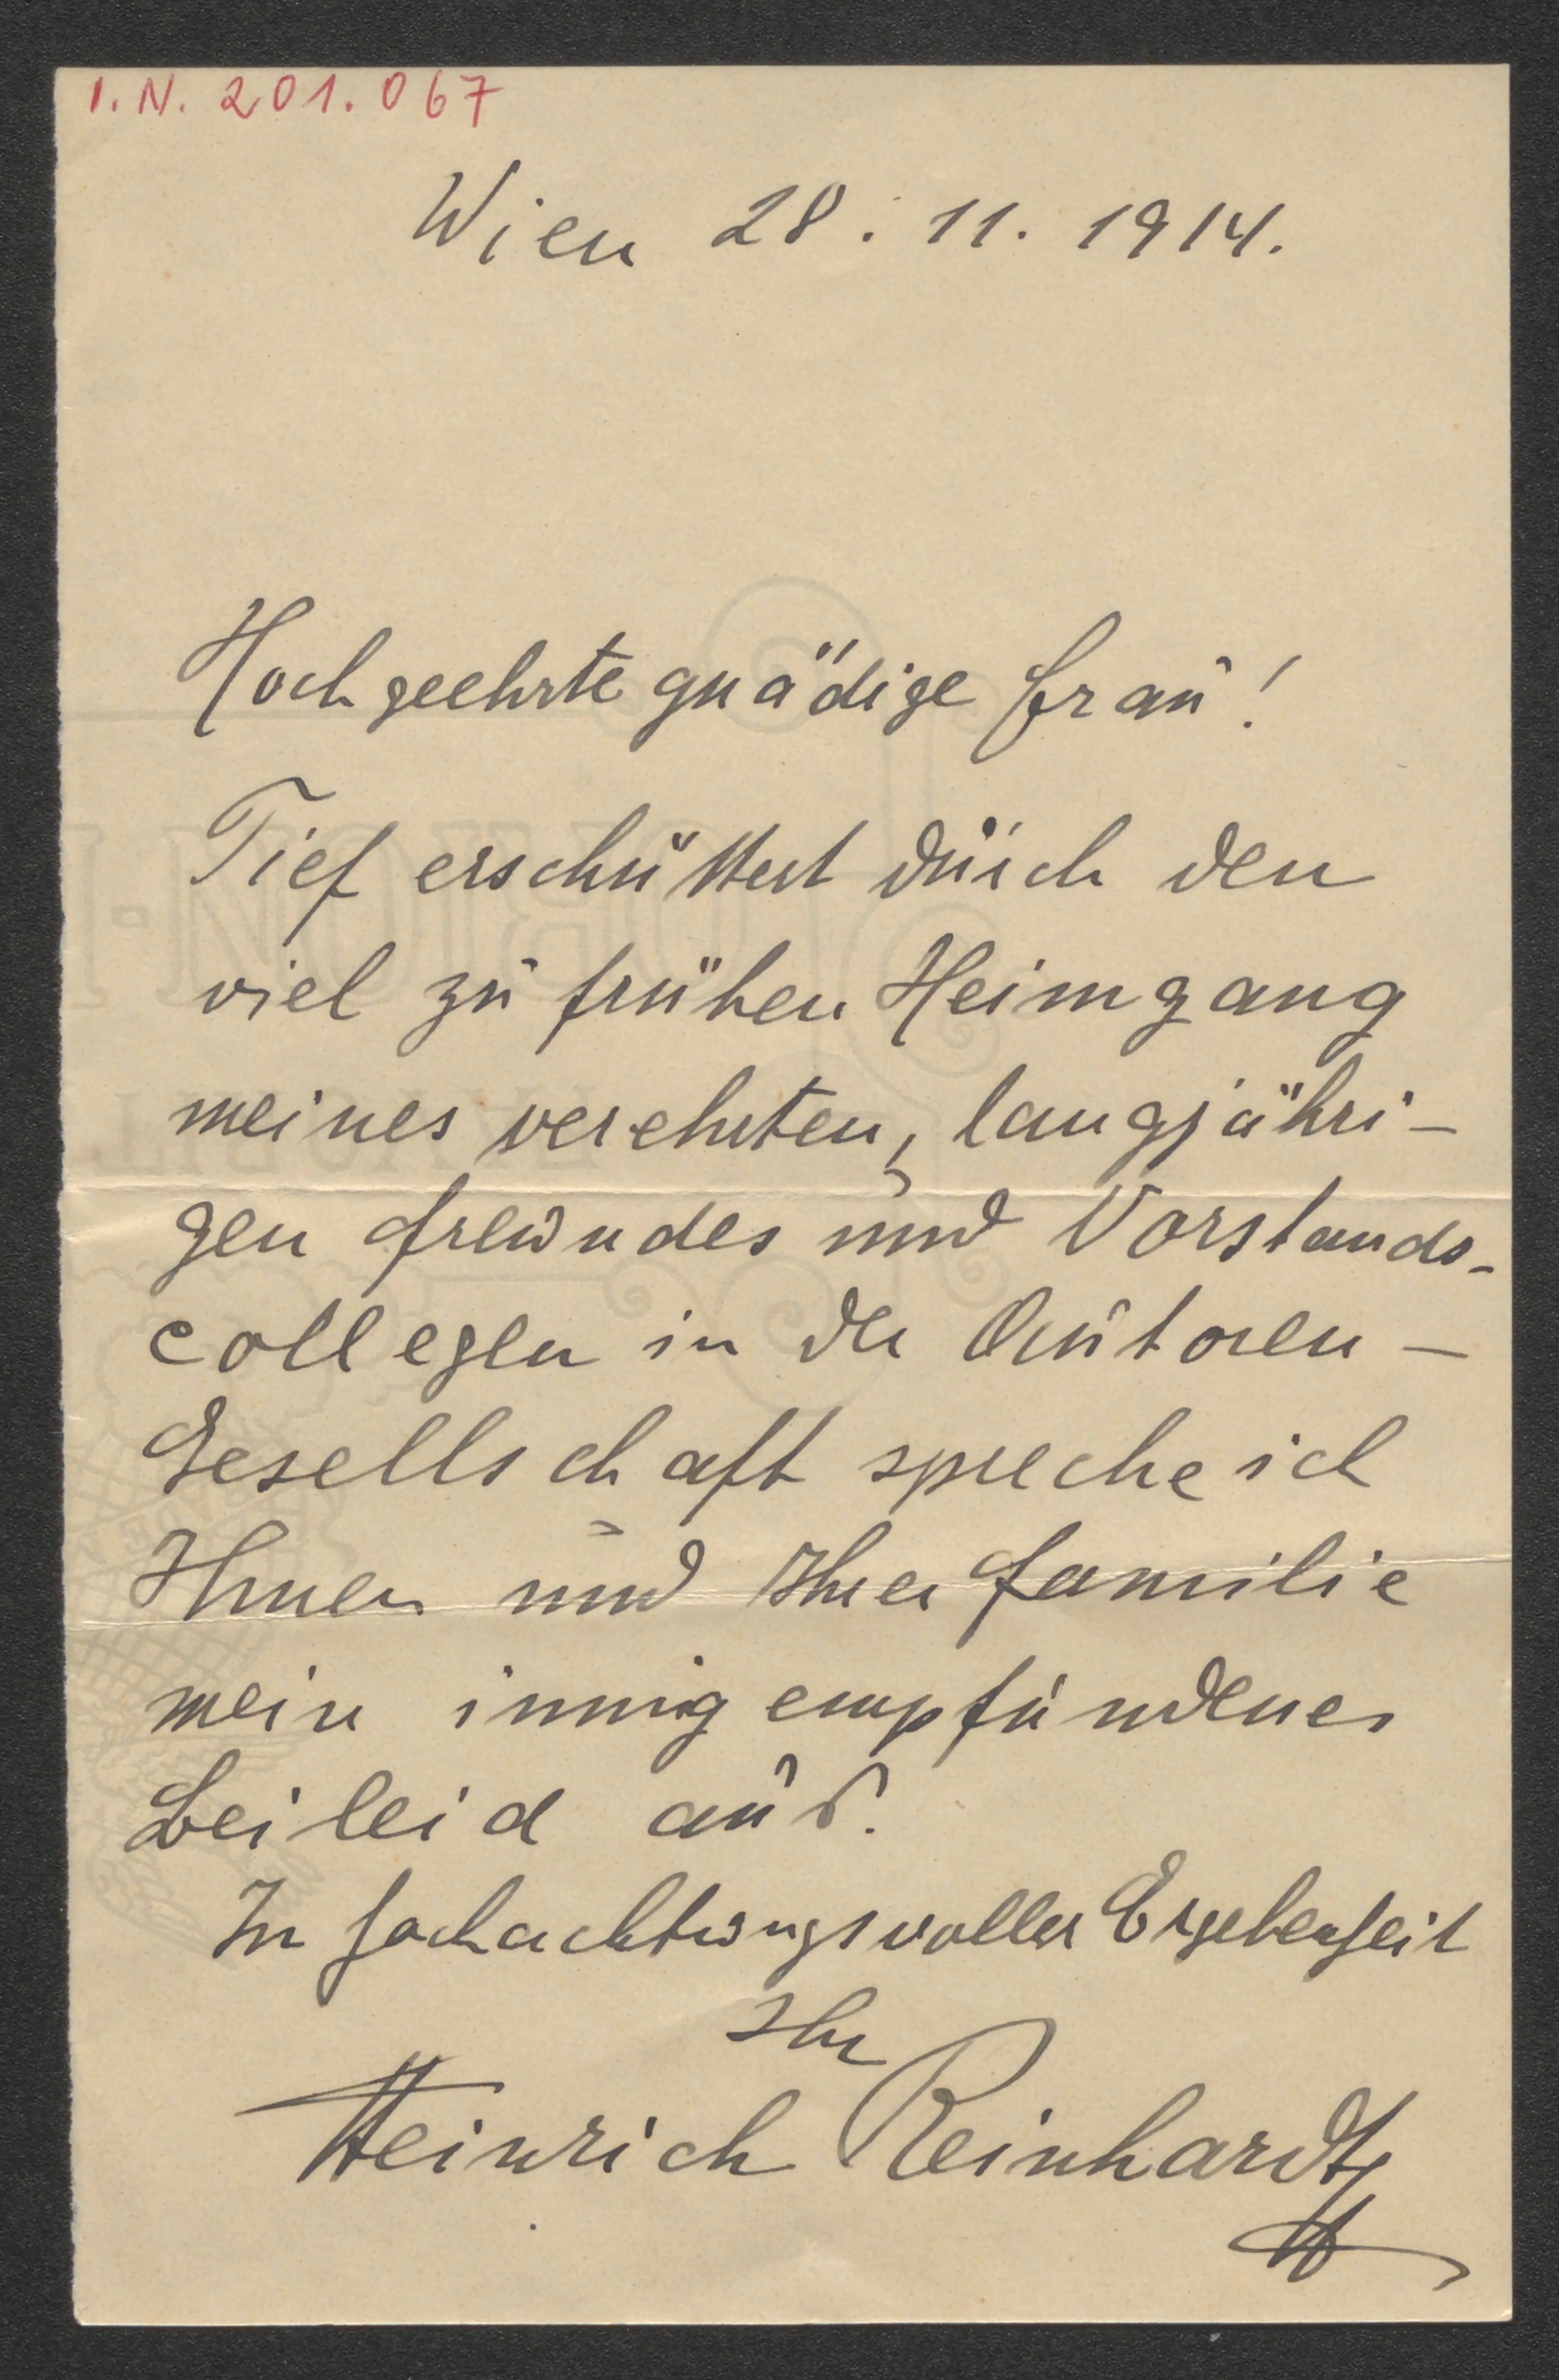 I.N. 201.067
Wien 28. 11. 1914.
Hochgeehrte gnädige Frau!
Tief erschüttert durch den
viel zu frühen Heimgang
meines verehrten, langjähri-
gen Freundes und Vorstands-
collegen in der Autoren-
Gesellschaft spreche ich
Ihnen und Ihrer Familie
mein innig empfundenes
Beileid aus.
In hochachtungsvoller Ergebenheit
Ihr
Heinrich Reinhardt